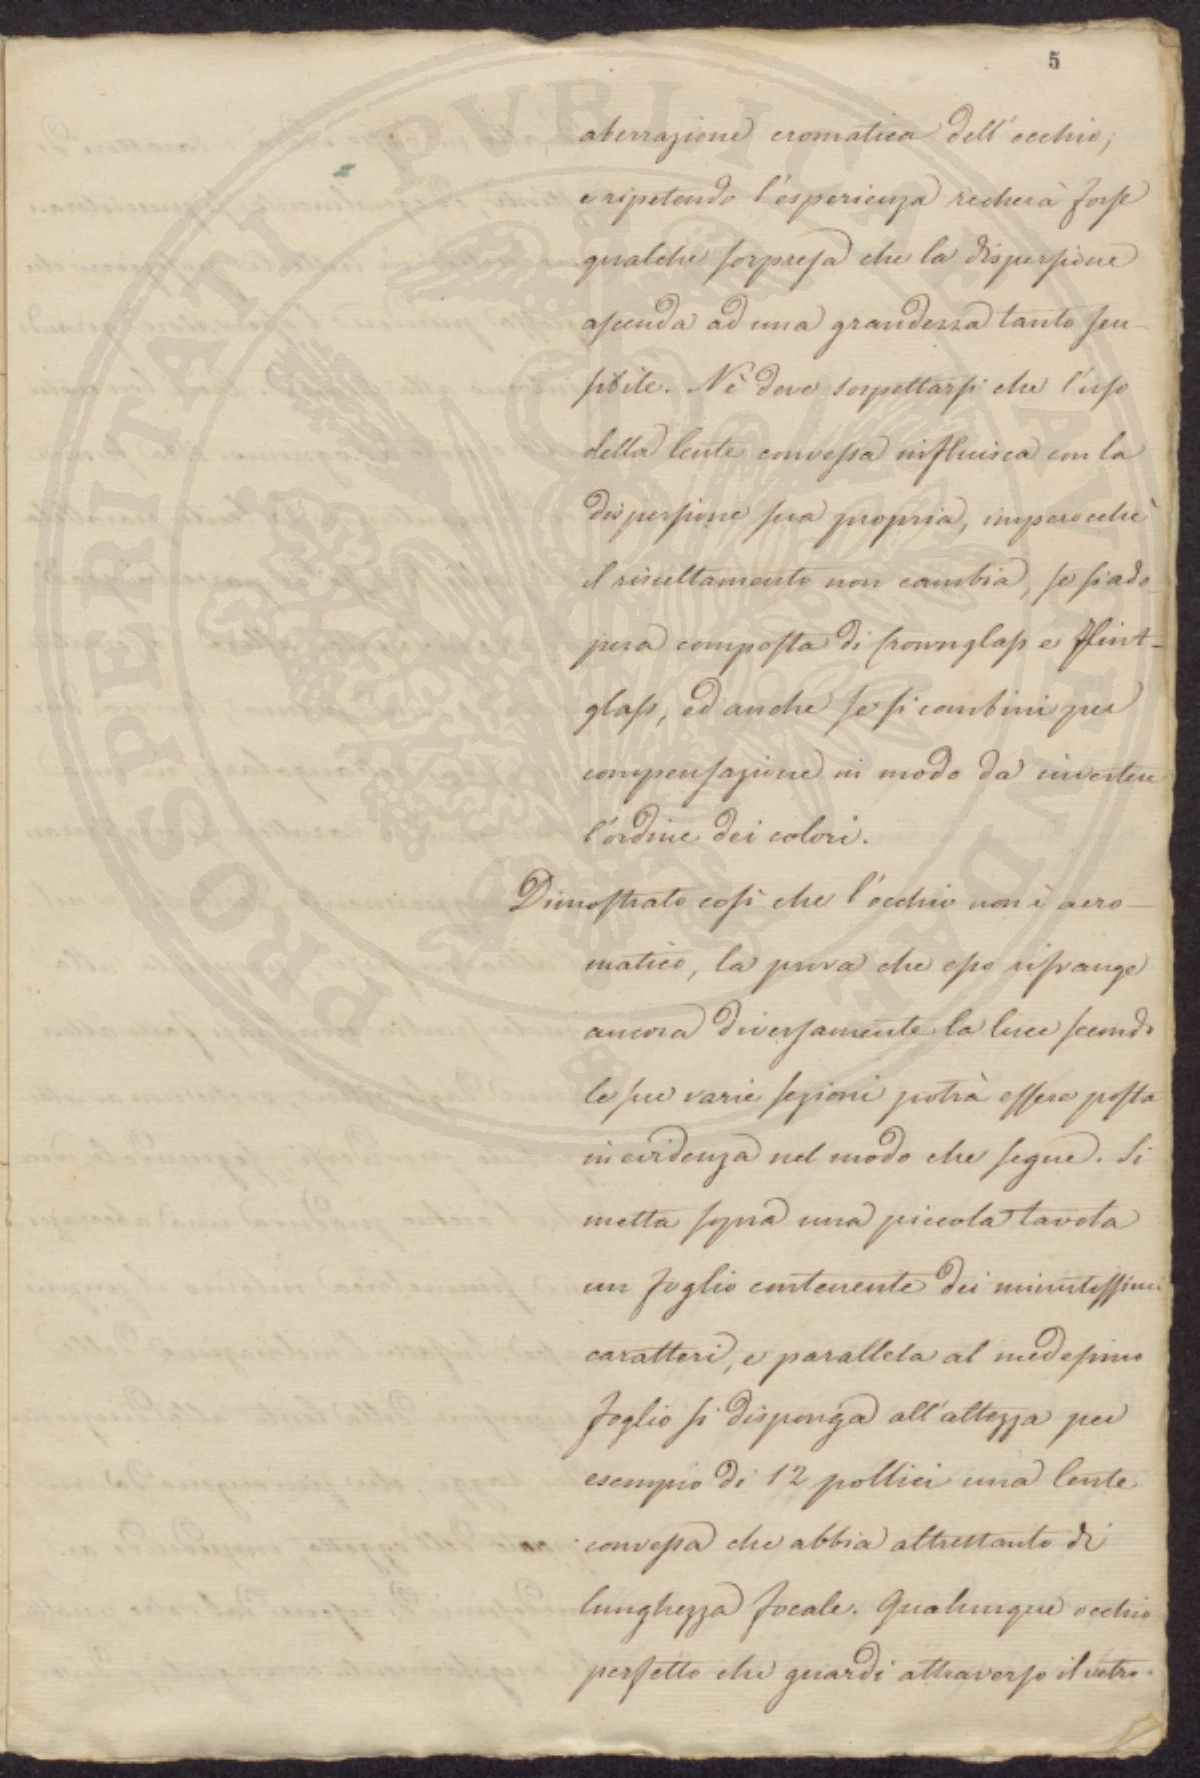 5
aberrazione cromatica dell'occhio;
e ripetendo l'esperienza recherà forse
qualche sorpresa che la dispersione
ascenda ad una grandezza tanto sen-
sibile. Nè deve sospettarsi che l'uso
della lente convessa influisca con la
dispersione sua propria, imperocchè
il risultamento non cambia, se si ado-
pera composta di Crownglass e Flint-
glass, ed anche se si combini per
compensazione in modo da invertere
l'ordine dei colori.
Dimostrato così che l'occhio non è acro-
matico, la prova che esso rifrange
ancora diversamente la luce secondo
le sue varie sezioni potrà essere posta
in evidenza nel modo che segue. Si
metta sopra una piccola tavola
un foglio contenente dei minutissimi
caratteri, e parallela al medesimo
foglio si disponga all'altezza per
esempio di 12 pollici una lente
convessa che abbia altrettanto di
lunghezza focale. Qualunque occhio
perfetto che guardi attraverso il vetro
PROSPERITATI PVBLICAE AVGENDAE